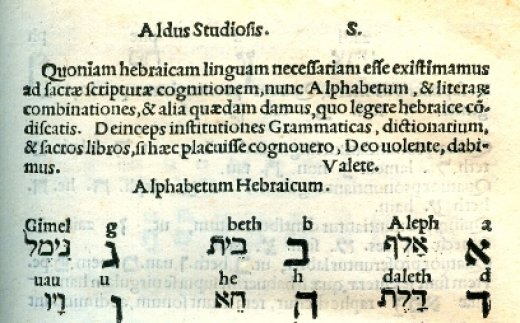 Aldus Studiosis. S.
Quoniam hebraicam linguam necessariam esse existimamus
ad sacræ scripturæ cognitionem, nunc Alphabetum, & literarum
combinationes, & alia quædam damus, quo legere hebraice cō-
discatis. Deinceps institutiones Grammaticas, dictionarium,
& sacros libros, si hæc placuisse cognouero, Deo uolente, dabi-
mus. Valete.
Alphabetum Hebraicum.
Gimel g beth b Aleph a
גימל ג בית ב אלף א
uau u he h daleth d
ויו ו הא ה דלת ד